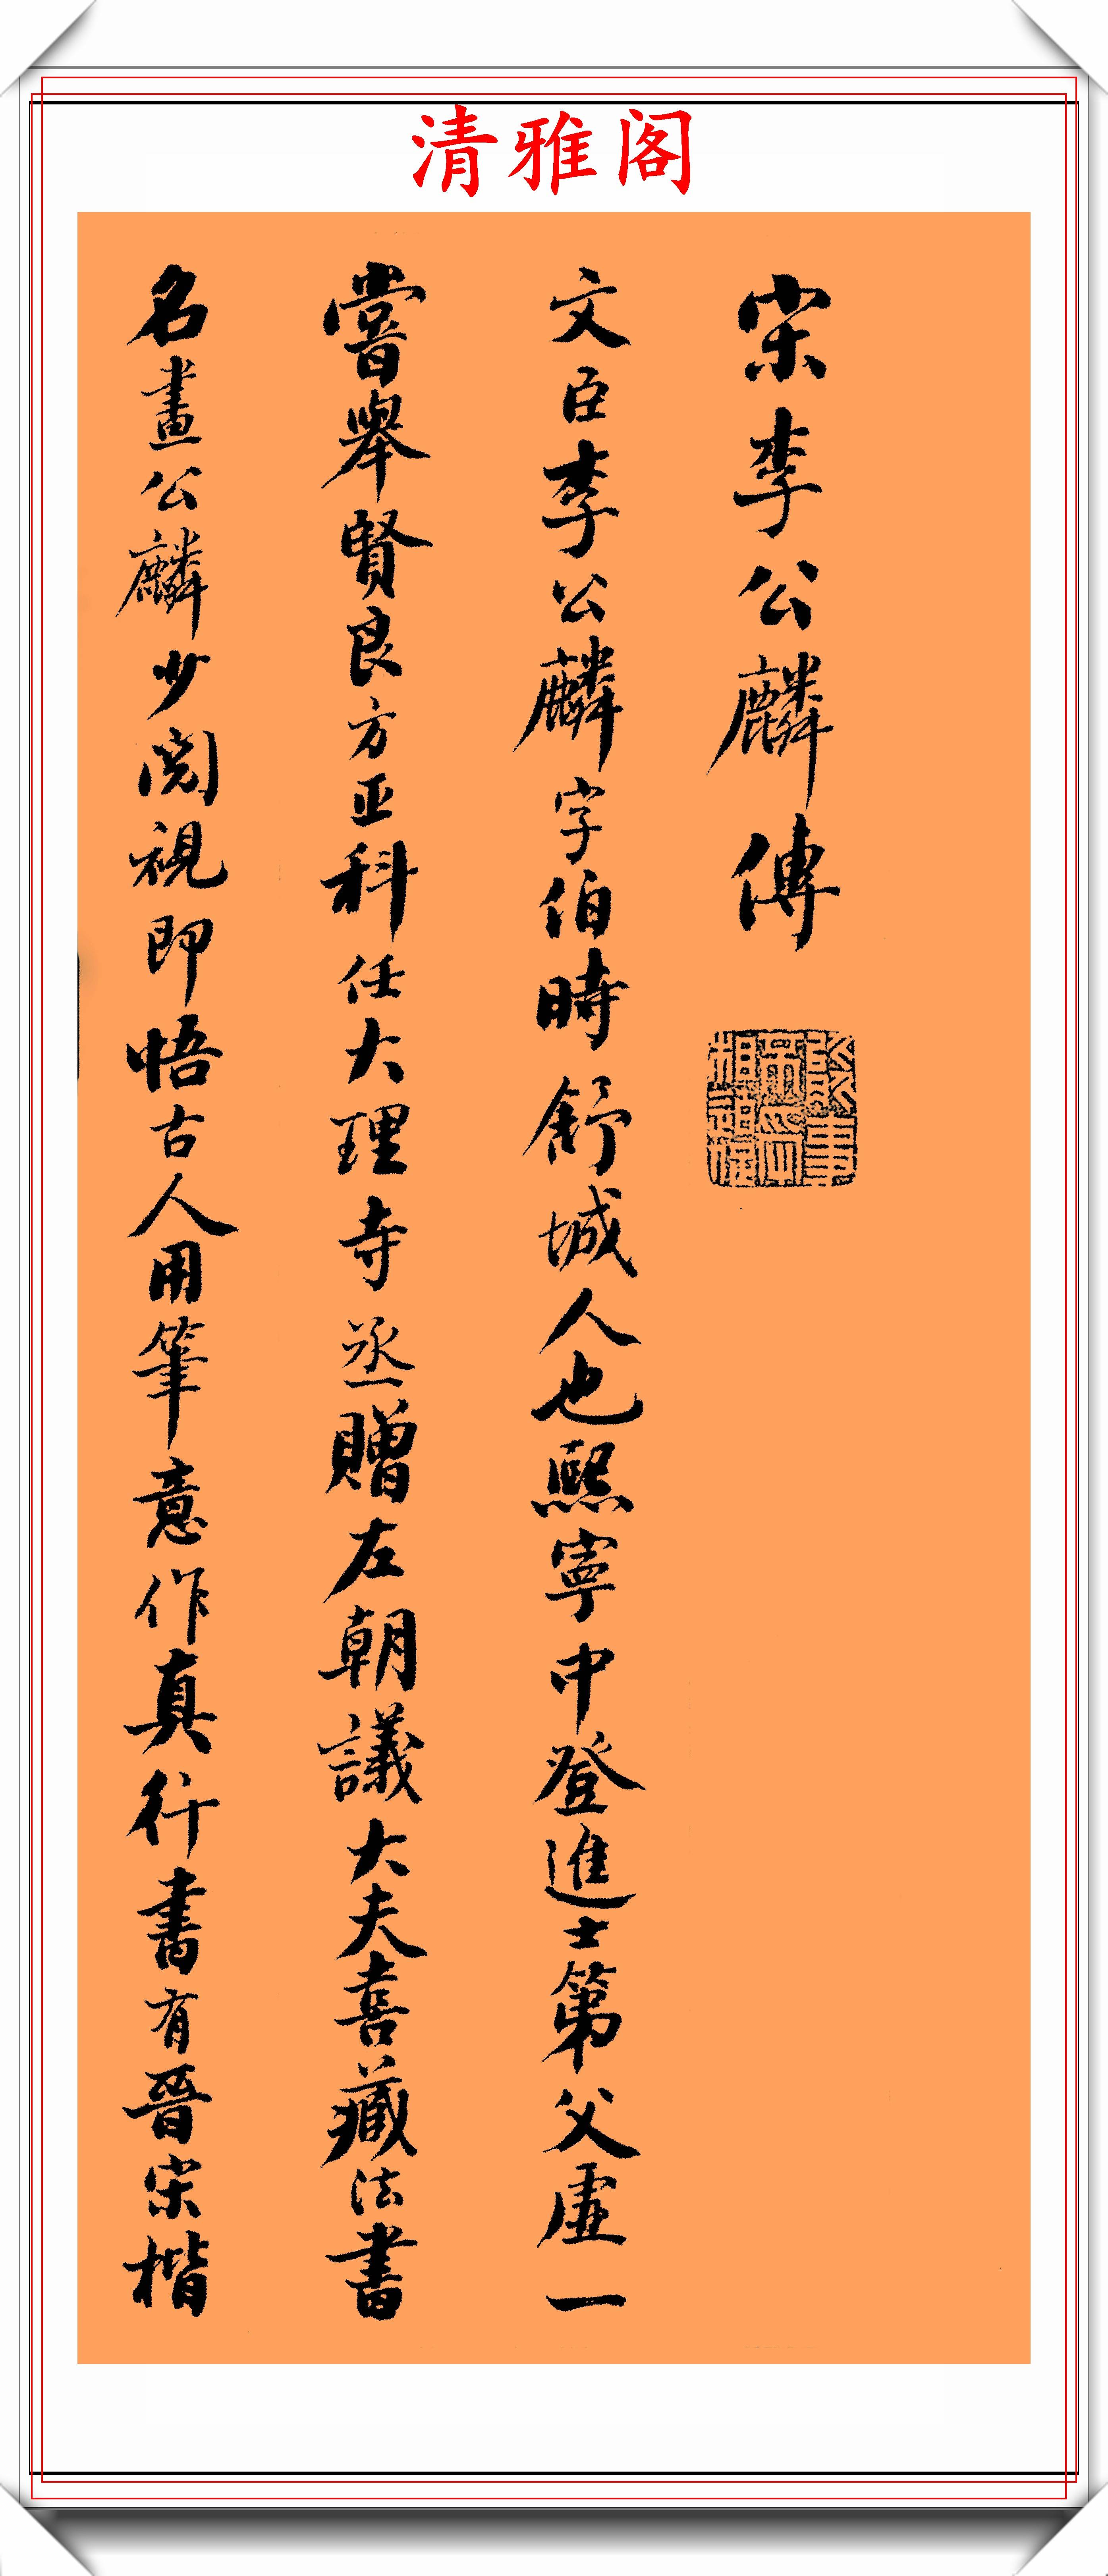 清雅阁
宋李公麟傳
文臣李公麟字伯時舒城人也熙寧中登進士第父虛一
嘗舉賢良方正科任大理寺丞贈左朝議大夫喜藏法書
名畫公麟少閱視即悟古人用筆意作真行書有晉宋楷